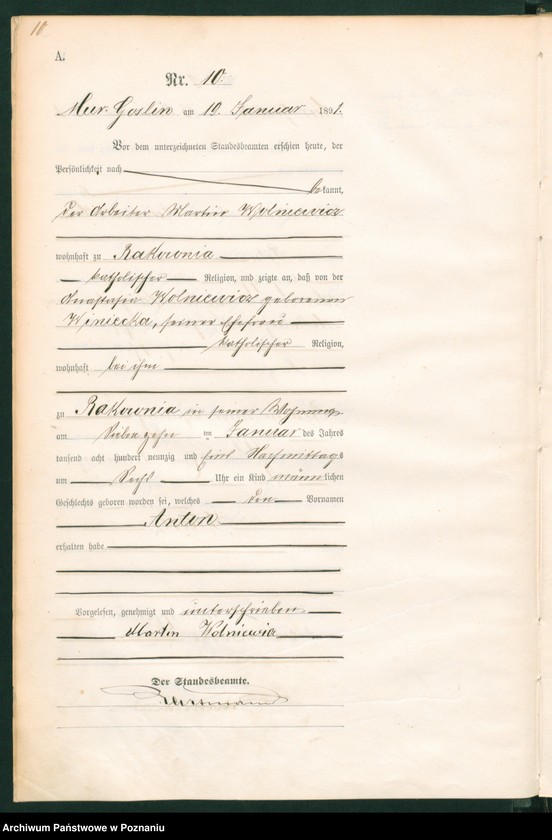 10
A.
Nr. 10.
Mur. Goslin am 19. Januar 1891.
Vor dem unterzeichneten Standesbeamten erschien heute, der
Persönlichkeit nach
bekannt,
der Arbeiter Martin Wolniewicz
wohnhaft zu Rakownia
katholischer Religion, und zeigte an, daß von der
Anastasia Wolniewicz geborenen
Winiecka, seiner Ehefrau
katholischer Religion,
wohnhaft bei ihm
zu Rakownia in seiner Wohnung
am siebenzehn ten Januar des Jahres
tausend acht hundert neunzig und eins Nachmittags
um sechs Uhr ein Kind männlichen
Geschlechts geboren worden sei, welches den Vornamen
Anton
erhalten habe
Vorgelesen, genehmigt und unterschrieben
Martin Wolniewicz
Der Standesbeamte.
Archiwum Państwowe w Poznaniu